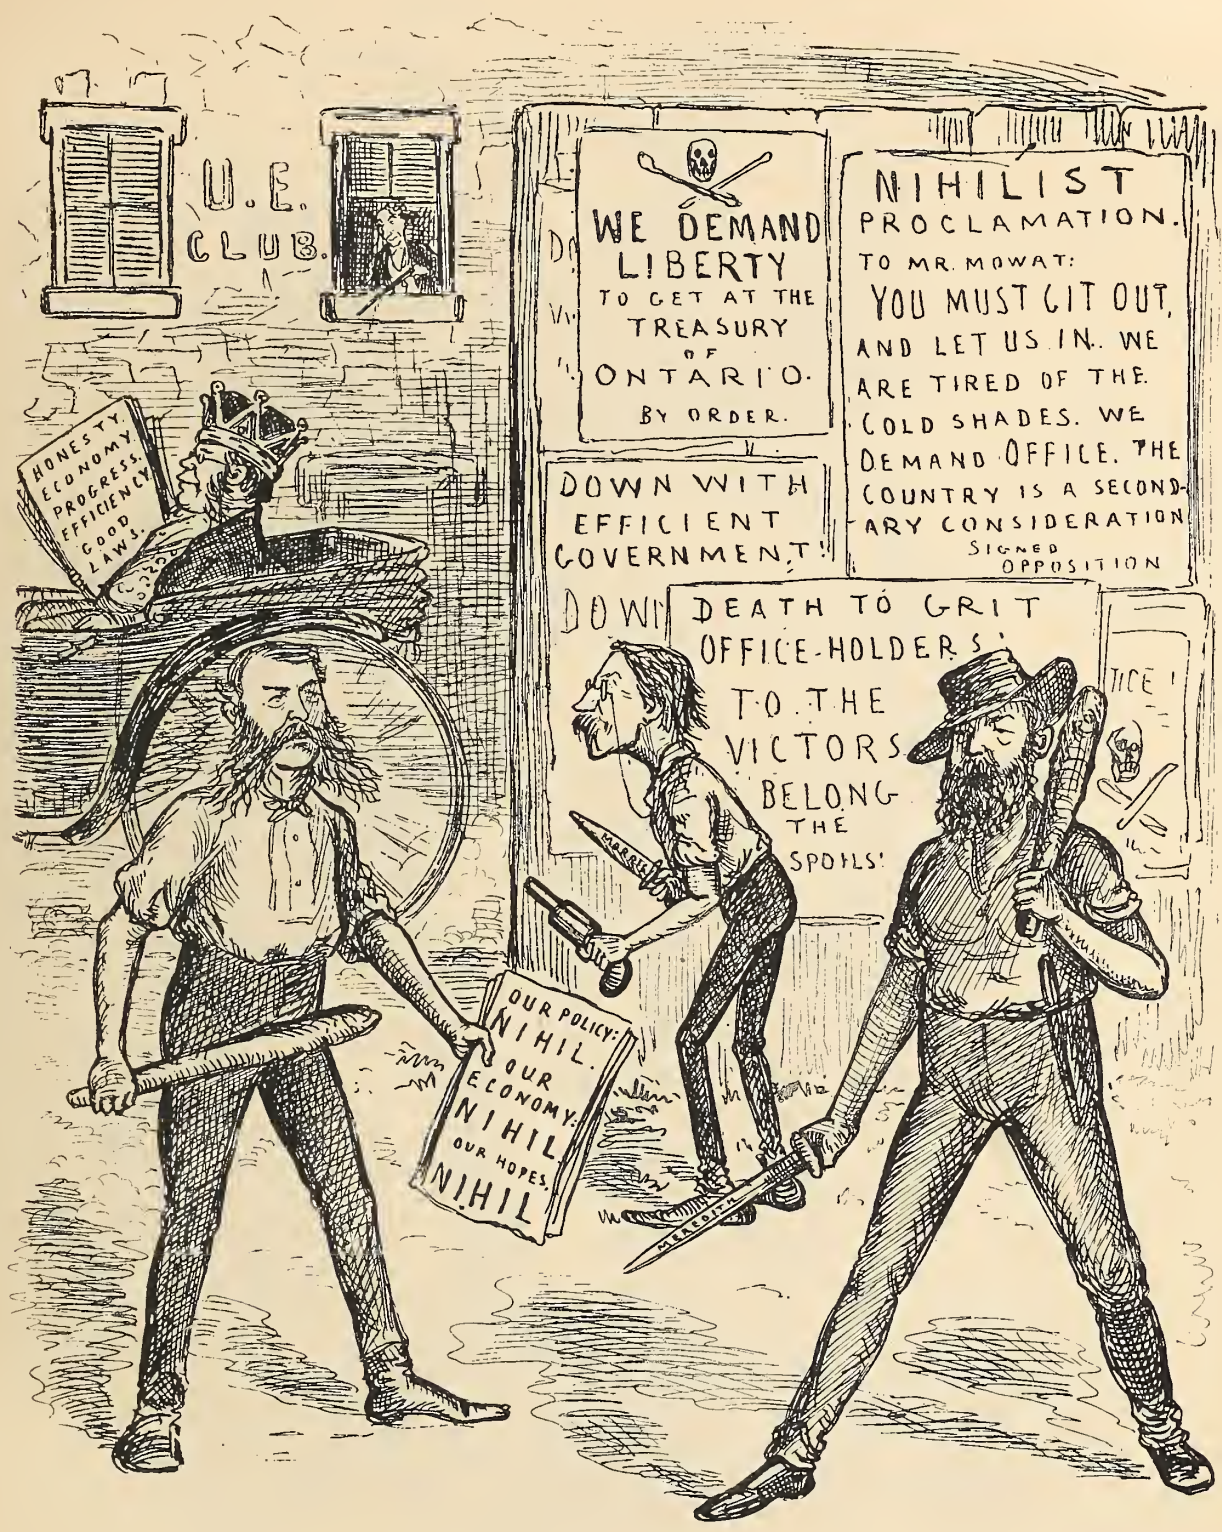 U.E.
CLUB.
HONESTY.
ECONOMY.
PROGRESS.
EFFICIENCY
GOOD
LAWS.
WE DEMAND
LIBERTY
TO GET AT THE
TREASURY
OF
ONTARIO.
BY ORDER.
NIHILIST
PROCLAMATION.
TO MR. MOWAT:
YOU MUST GIT OUT,
AND LET US IN. WE
ARE TIRED OF THE
COLD SHADES. WE
DEMAND OFFICE. THE
COUNTRY IS A SECOND-
ARY CONSIDERATION
SIGNED
OPPOSITION
DOWN WITH
EFFICIENT
GOVERNMENT!
DOW
DEATH TO GRIT
OFFICE-HOLDERS!
TO THE
VICTORS
BELONG
THE
SPOILS!
TICE!
MORRIS
OUR POLICY:
NIHIL.
OUR
ECONOMY:
NIHIL
OUR HOPES.
NIHIL
MEREDITH